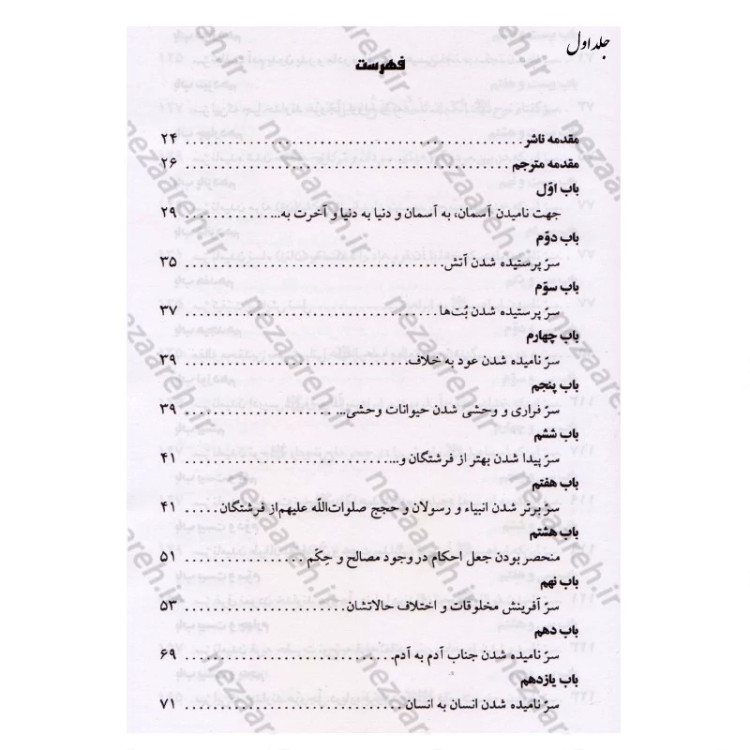 جلد اول
فهرست
مقدمه ناشر................................................ ۲۴
مقدمه مترجم................................................ ۲۶
باب اوّل
جهت نامیدن آسمان، به آسمان و دنیا به دنیا و آخرت به............... ۲۹
باب دوّم
سرّ پرستیده شدن آتش................................ ۳۵
باب سوّم
سرّ پرستیده شدن بُت‌ها................................ ۳۷
باب چهارم
سرّ نامیده شدن عود به خلاف................................ ۳۹
باب پنجم
سرّ فراری و وحشی شدن حیوانات وحشی... .................. ۳۹
باب ششم
سرّ پیدا شدن بهتر از فرشتگان و............................ ۴۱
باب هفتم
سرّ برتر شدن انبیاء و رسولان و حجج صلوات‌اللّه علیهم‌از فرشتگان..... ۴۱
باب هشتم
منحصر بودن جعل احکام در وجود مصالح و حِکَم ............... ۵۱
باب نهم
سرّ آفرینش مخلوقات و اختلاف حالاتشان..................... ۵۳
باب دهم
سرّ نامیده شدن جناب آدم به آدم............................ ۶۹
باب یازدهم
سرّ نامیده شدن انسان به انسان............................ ۷۱
nezaareh.ir